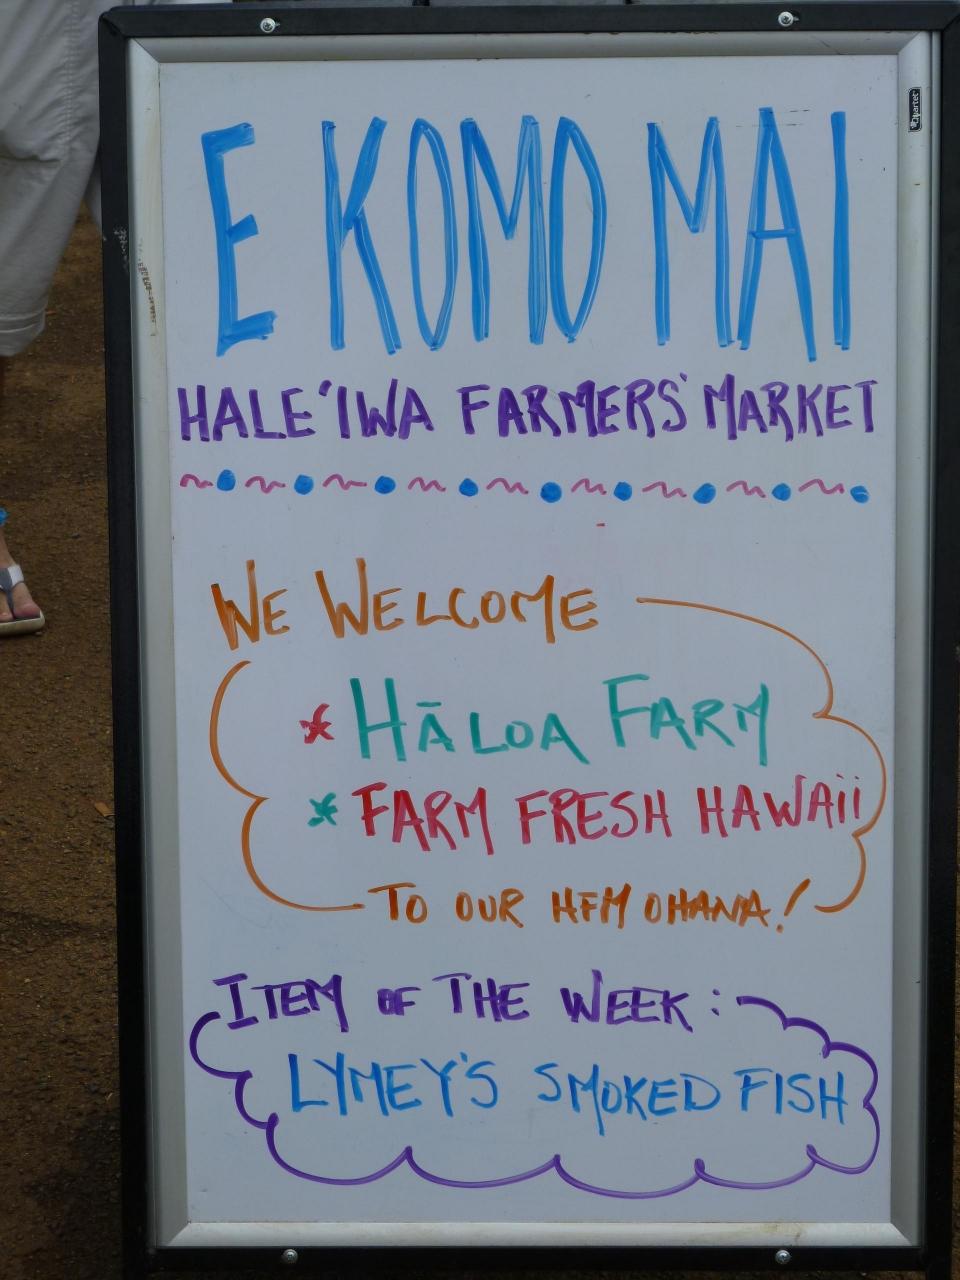 Quartet
E KOMO MAI
HALE'IWA FARMERS' MARKET
WE WELCOME
* HĀLOA FARM
* FARM FRESH HAWAii
TO OUR HFM OHANA!
ITEM OF THE WEEK:
LYMEY'S SMOKED FISH